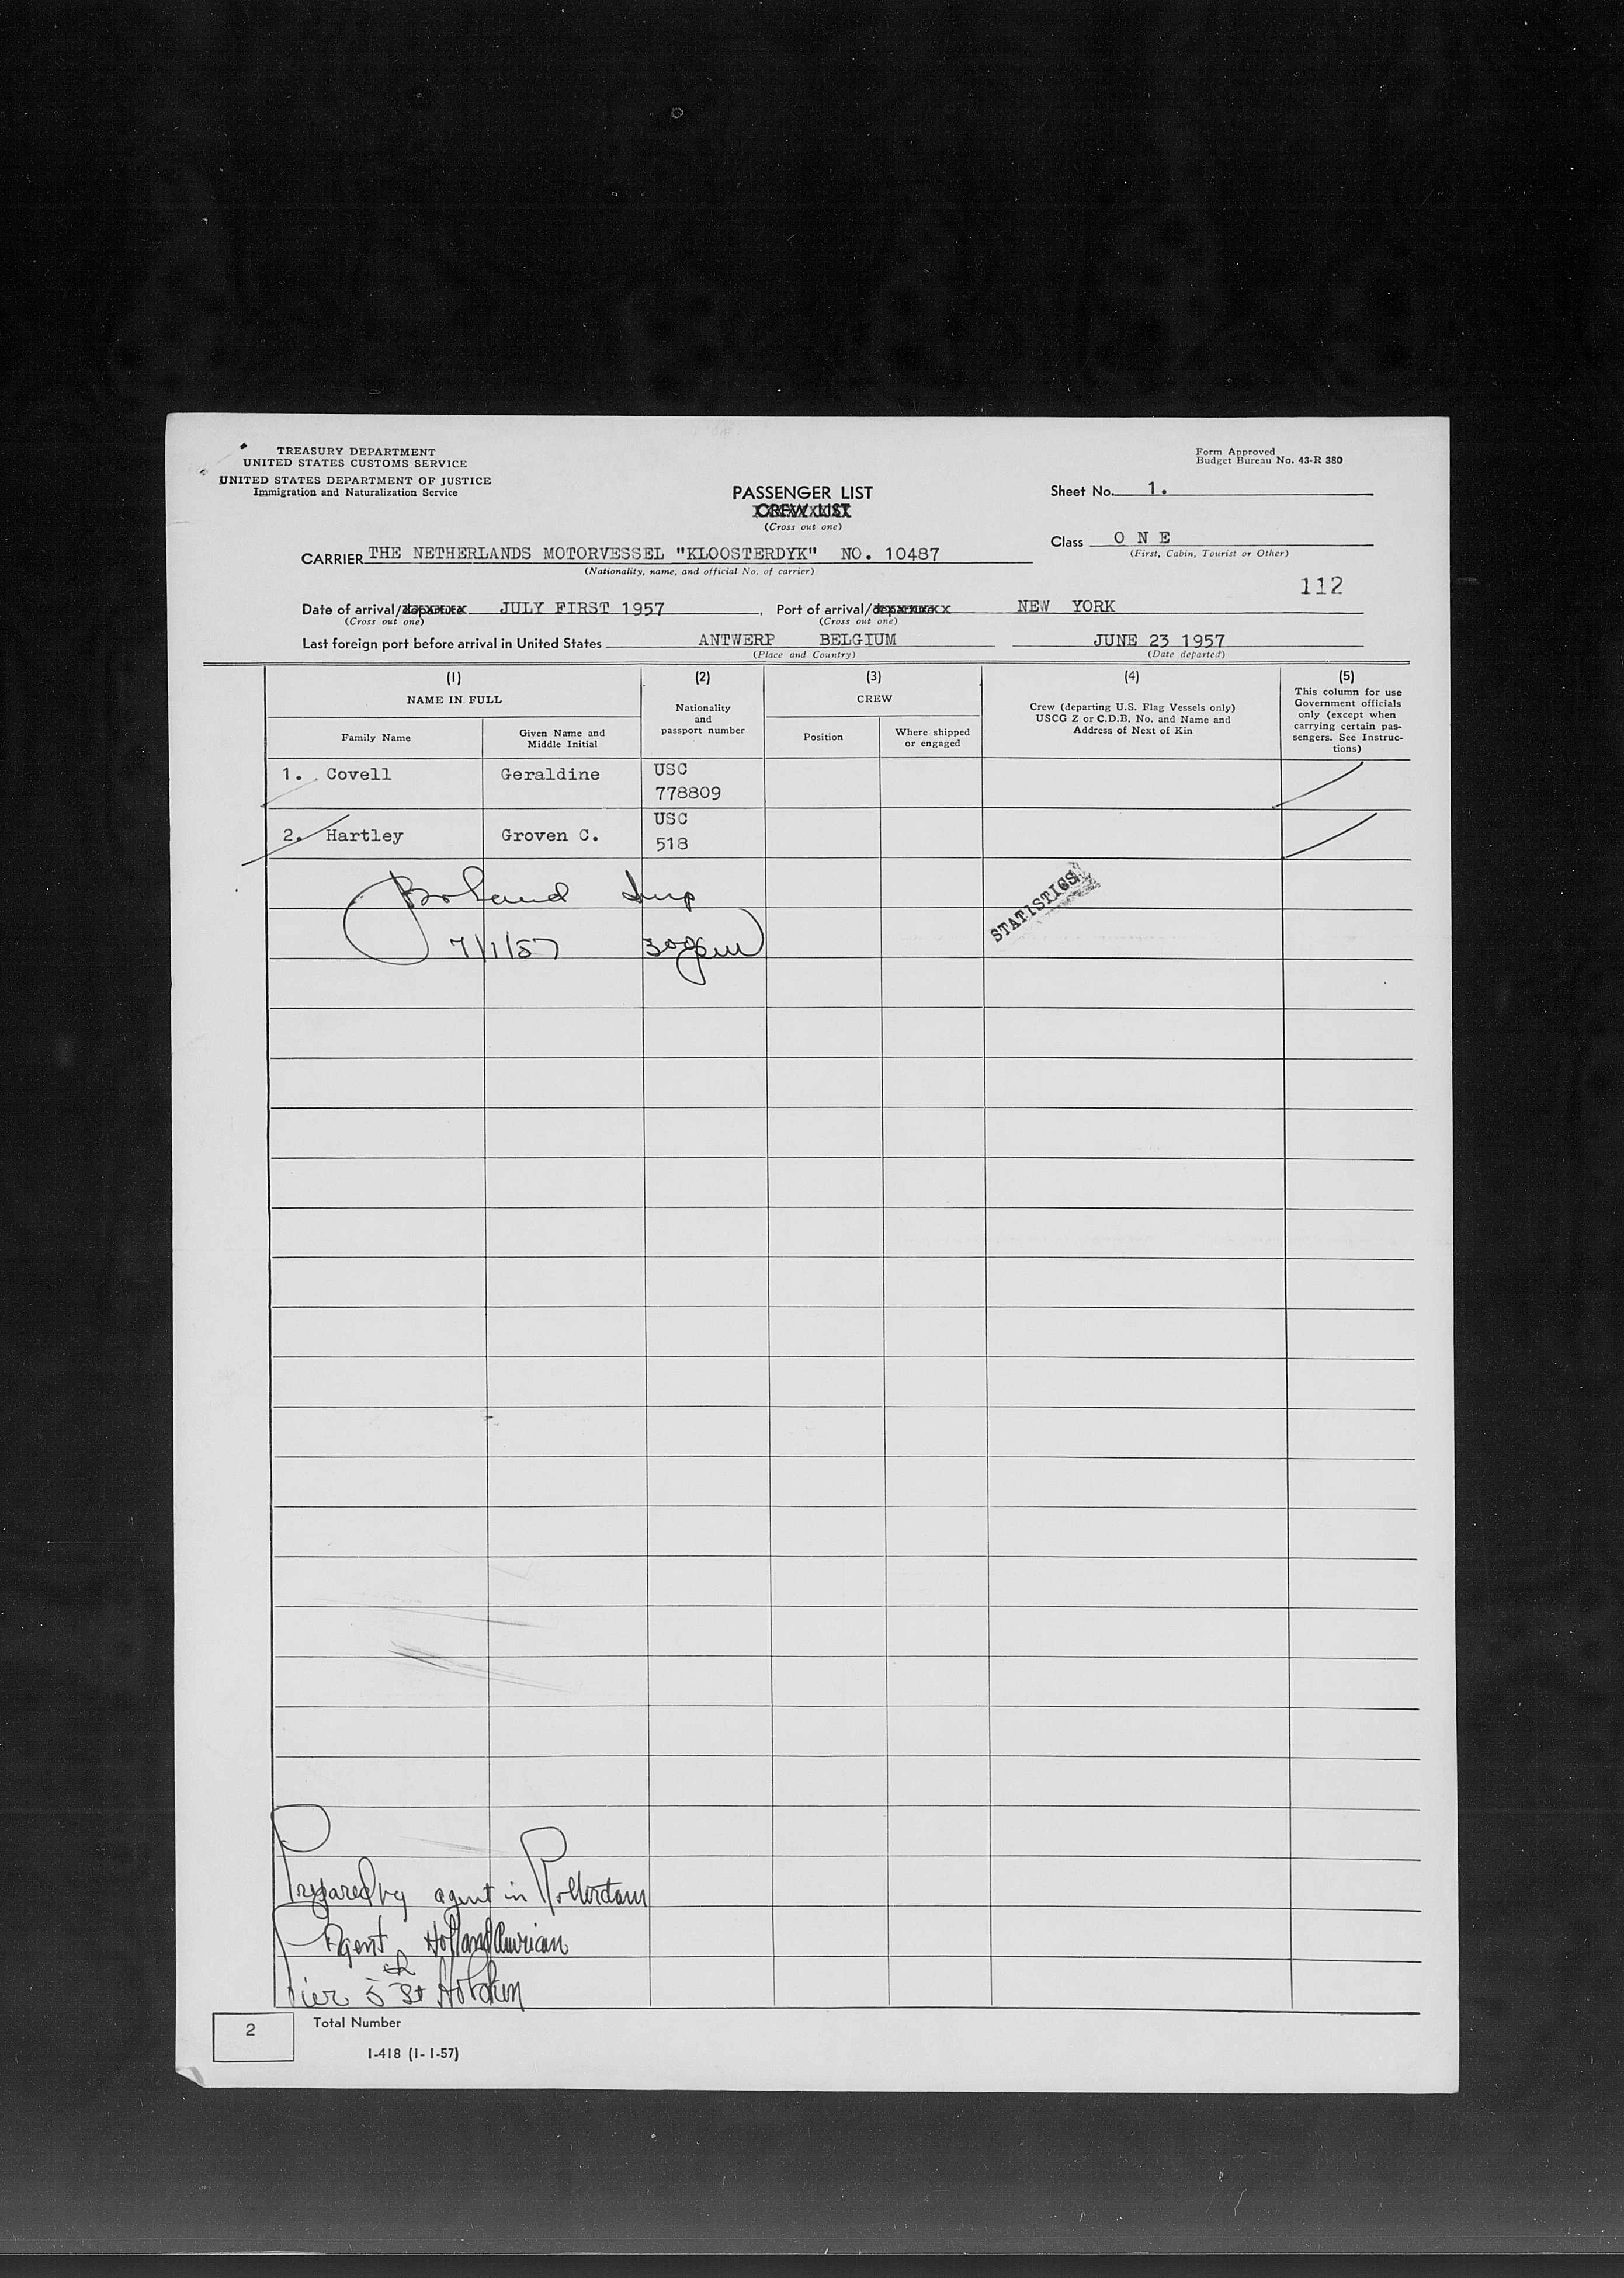 TREASURY DEPARTMENT
UNITED STATES CUSTOMS SERVICE
UNITED STATES DEPARTMENT OF JUSTICE
Immigration and Naturalization Service
Form Approved
Budget Bureau No. 43-R 380
PASSENGER LIST
CREW LIST
(Cross out one)
Sheet No. 1.
Class O N E
(First, Cabin, Tourist or Other)
CARRIER THE NETHERLANDS MOTORVESSEL "KLOOSTERDYK" NO. 10487
(Nationality, name, and official No. of carrier)
112
Date of arrival/departure JULY FIRST 1957, Port of arrival/departure NEW YORK
(Cross out one) (Cross out one)
Last foreign port before arrival in United States ANTWERP BELGIUM JUNE 23 1957
(Place and Country) (Date departed)
(1) (2) (3) (4) (5)
NAME IN FULL
Family Name
Given Name and
Middle Initial
Nationality
and
passport number
CREW
Position
Where shipped
or engaged
Crew (departing U.S. Flag Vessels only)
USCG Z or C.D.B. No. and Name and
Address of Next of Kin
This column for use
Government officials
only (except when
carrying certain pas-
sengers. See Instruc-
tions)
1. Covell Geraldine USC
778809
2. Hartley Groven C. USC
518
STATISTICS
7/1/57 300pm
Prepared by agent in Rotterdam
Agent Holland American
Pier 5th St Hoboken
2 Total Number
I-418 (1-1-57)